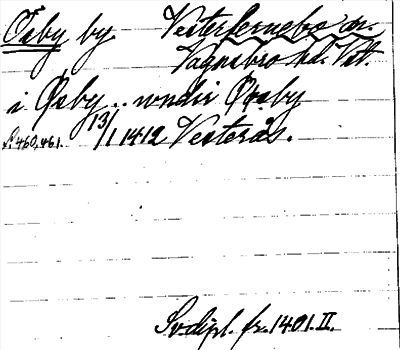 Ösby by Västerfernebo sn.
Vagnsbro hd. Vstm.
i Øsby .. wndir Øæsby
S. 460, 461. 13/1 1412 Västerås.
Sv. dipl. fr. 1401. II.